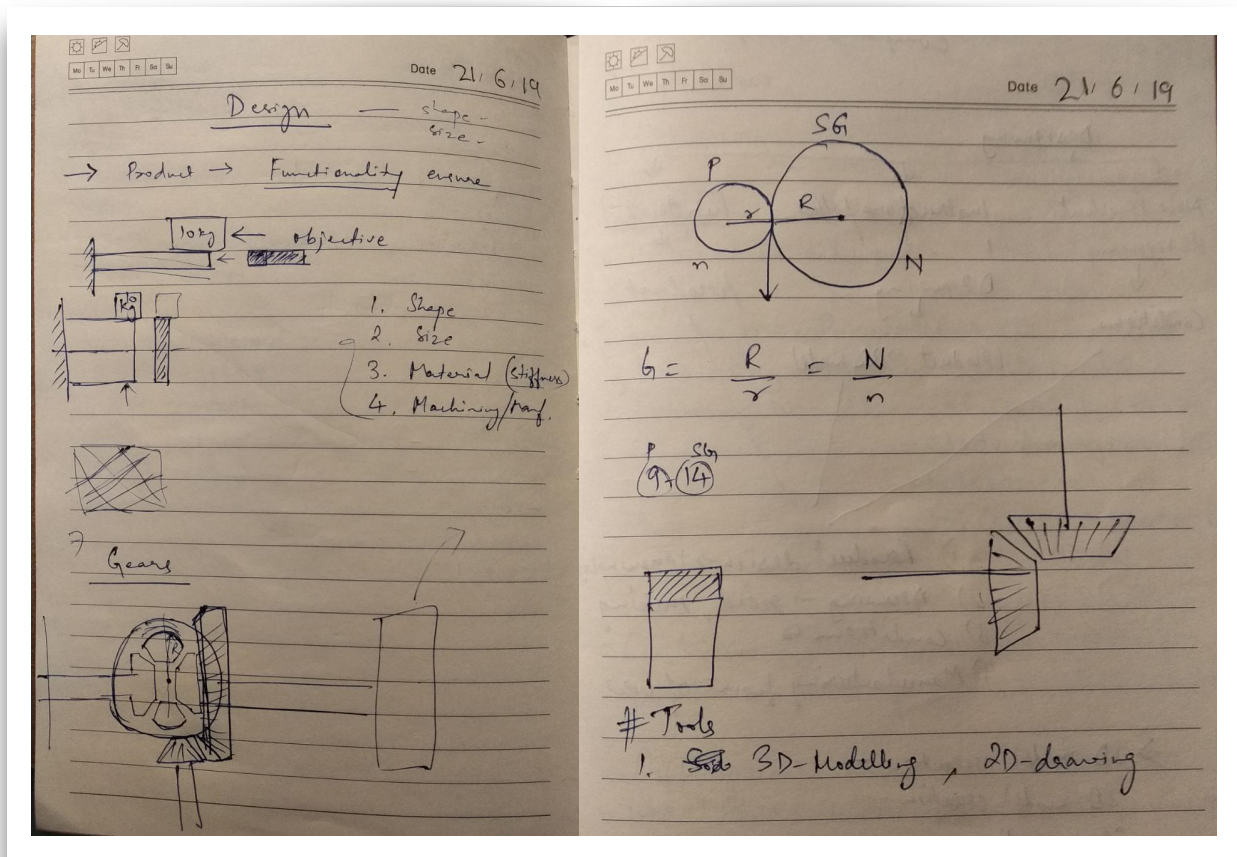 Mo Tu We Th Fr Sa Su
Date 21/6/19
Design — shape -
size -
→ Product → Functionality ensure
10kg ← objective
10
kg
1. Shape
2. Size
3. Material (Stiffness)
4. Machining/Manf.
Gears
R
Mo Tu We Th Fr Sa Su
Date 21/6/19
SG
P
r R
n N
G = R/r = N/n
P SG
9, 14
# Tools
1. 3D-Modelling, 2D-drawing